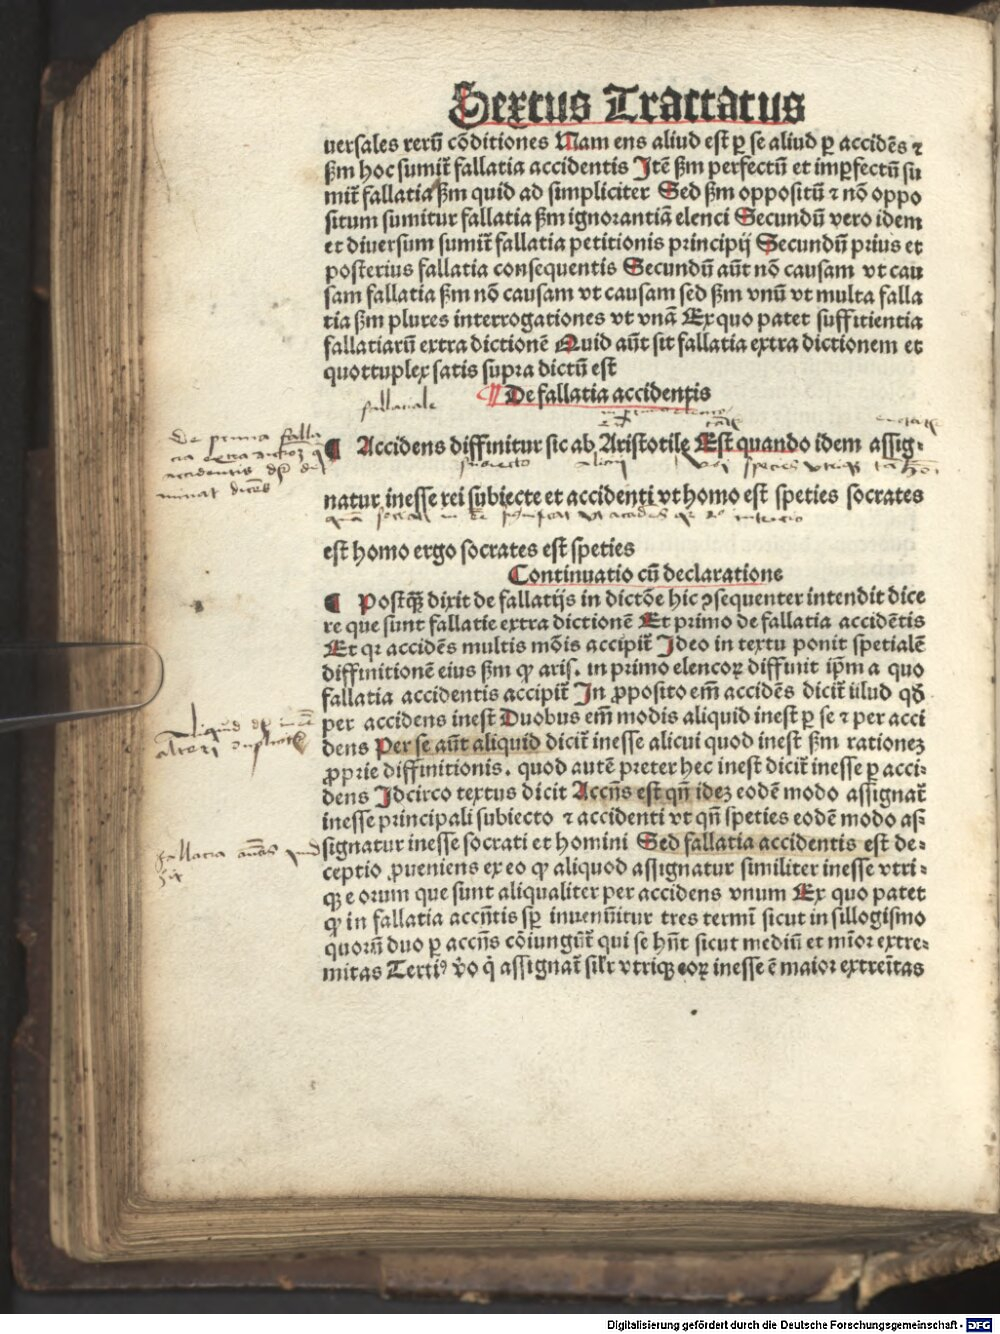 Sextus Tractatus
uersales rerū cōditiones Nam ens aliud est ꝑ se aliud ꝑ accidēs ⁊
ẜm hoc sumit̄ fallatia accidentis Itē ẜm perfectū et imꝑfectū su
mit̄ fallatia ẜm quid ad simpliciter Sed ẜm oppositū ⁊ nō oppo
situm sumitur fallatia ẜm ignorantiā elenci Secundū vero idem
et diuersum sumit̄ fallatia petitionis principij Secundū prius et
posterius fallatia consequentis Secundū aūt nō causam vt cau
sam fallatia ẜm nō causam vt causam sed ẜm vnū vt multa falla
tia ẜm plures interrogationes vt vnā Ex quo patet suffitientia
fallatiarū extra dictionē Quid aūt sit fallatia extra dictionem et
quottuplex satis supra dictū est
¶ De fallatia accidentis
¶ Accidens diffinitur sic ab Aristotile Est quando idem assig-
natur inesse rei subiecte et accidenti vt homo est speties socrates
est homo ergo socrates est speties
Continuatio cū declaratione
¶ Postq̄ꝫ dixit de fallatijs in dictōe hic ꝯsequenter intendit dice
re que sunt fallatie extra dictionē Et primo de fallatia accidētis
Et qꝛ accidēs multis mōis accipit̄ Ideo in textu ponit spetialē
diffinitionē eius ẜm ꝙ aris. in primo elencoꝝ diffinit ip̄m a quo
fallatia accidentis accipit̄ In ꝓposito em̄ accidēs dicit̄ illud qď
per accidens inest Duobus em̄ modis aliquid inest ꝑ se ⁊ per acci
dens Per se aūt aliquid dicit̄ inesse alicui quod inest ẜm rationeꝫ
ꝓprie diffinitionis. quod autē preter hec inest dicit̄ inesse ꝑ acci-
dens Idcirco textus dicit Accn̄s est qn̄ ideꝫ eodē modo assignat̄
inesse principali subiecto ⁊ accidenti vt qn̄ speties eodē modo as-
signatur inesse socrati et homini Sed fallatia accidentis est de-
ceptio ꝓueniens ex eo ꝙ aliquod assignatur similiter inesse vtri-
qꝫ eorum que sunt aliqualiter per accidens vnum Ex quo patet
ꝙ in fallatia accn̄tis sꝑ inuenin̄tur tres termī sicut in sillogismo
quorū duo ꝑ accn̄s cōiungūt̄ qui se hn̄t sicut mediū et mīor extre-
mitas Tertiꝰ v̊o q̇ assignat̄ sil̄r vtriqꝫ eoꝝ inesse ē maior extreītas
Digitalisierung gefördert durch die Deutsche Forschungsgemeinschaft - DFG